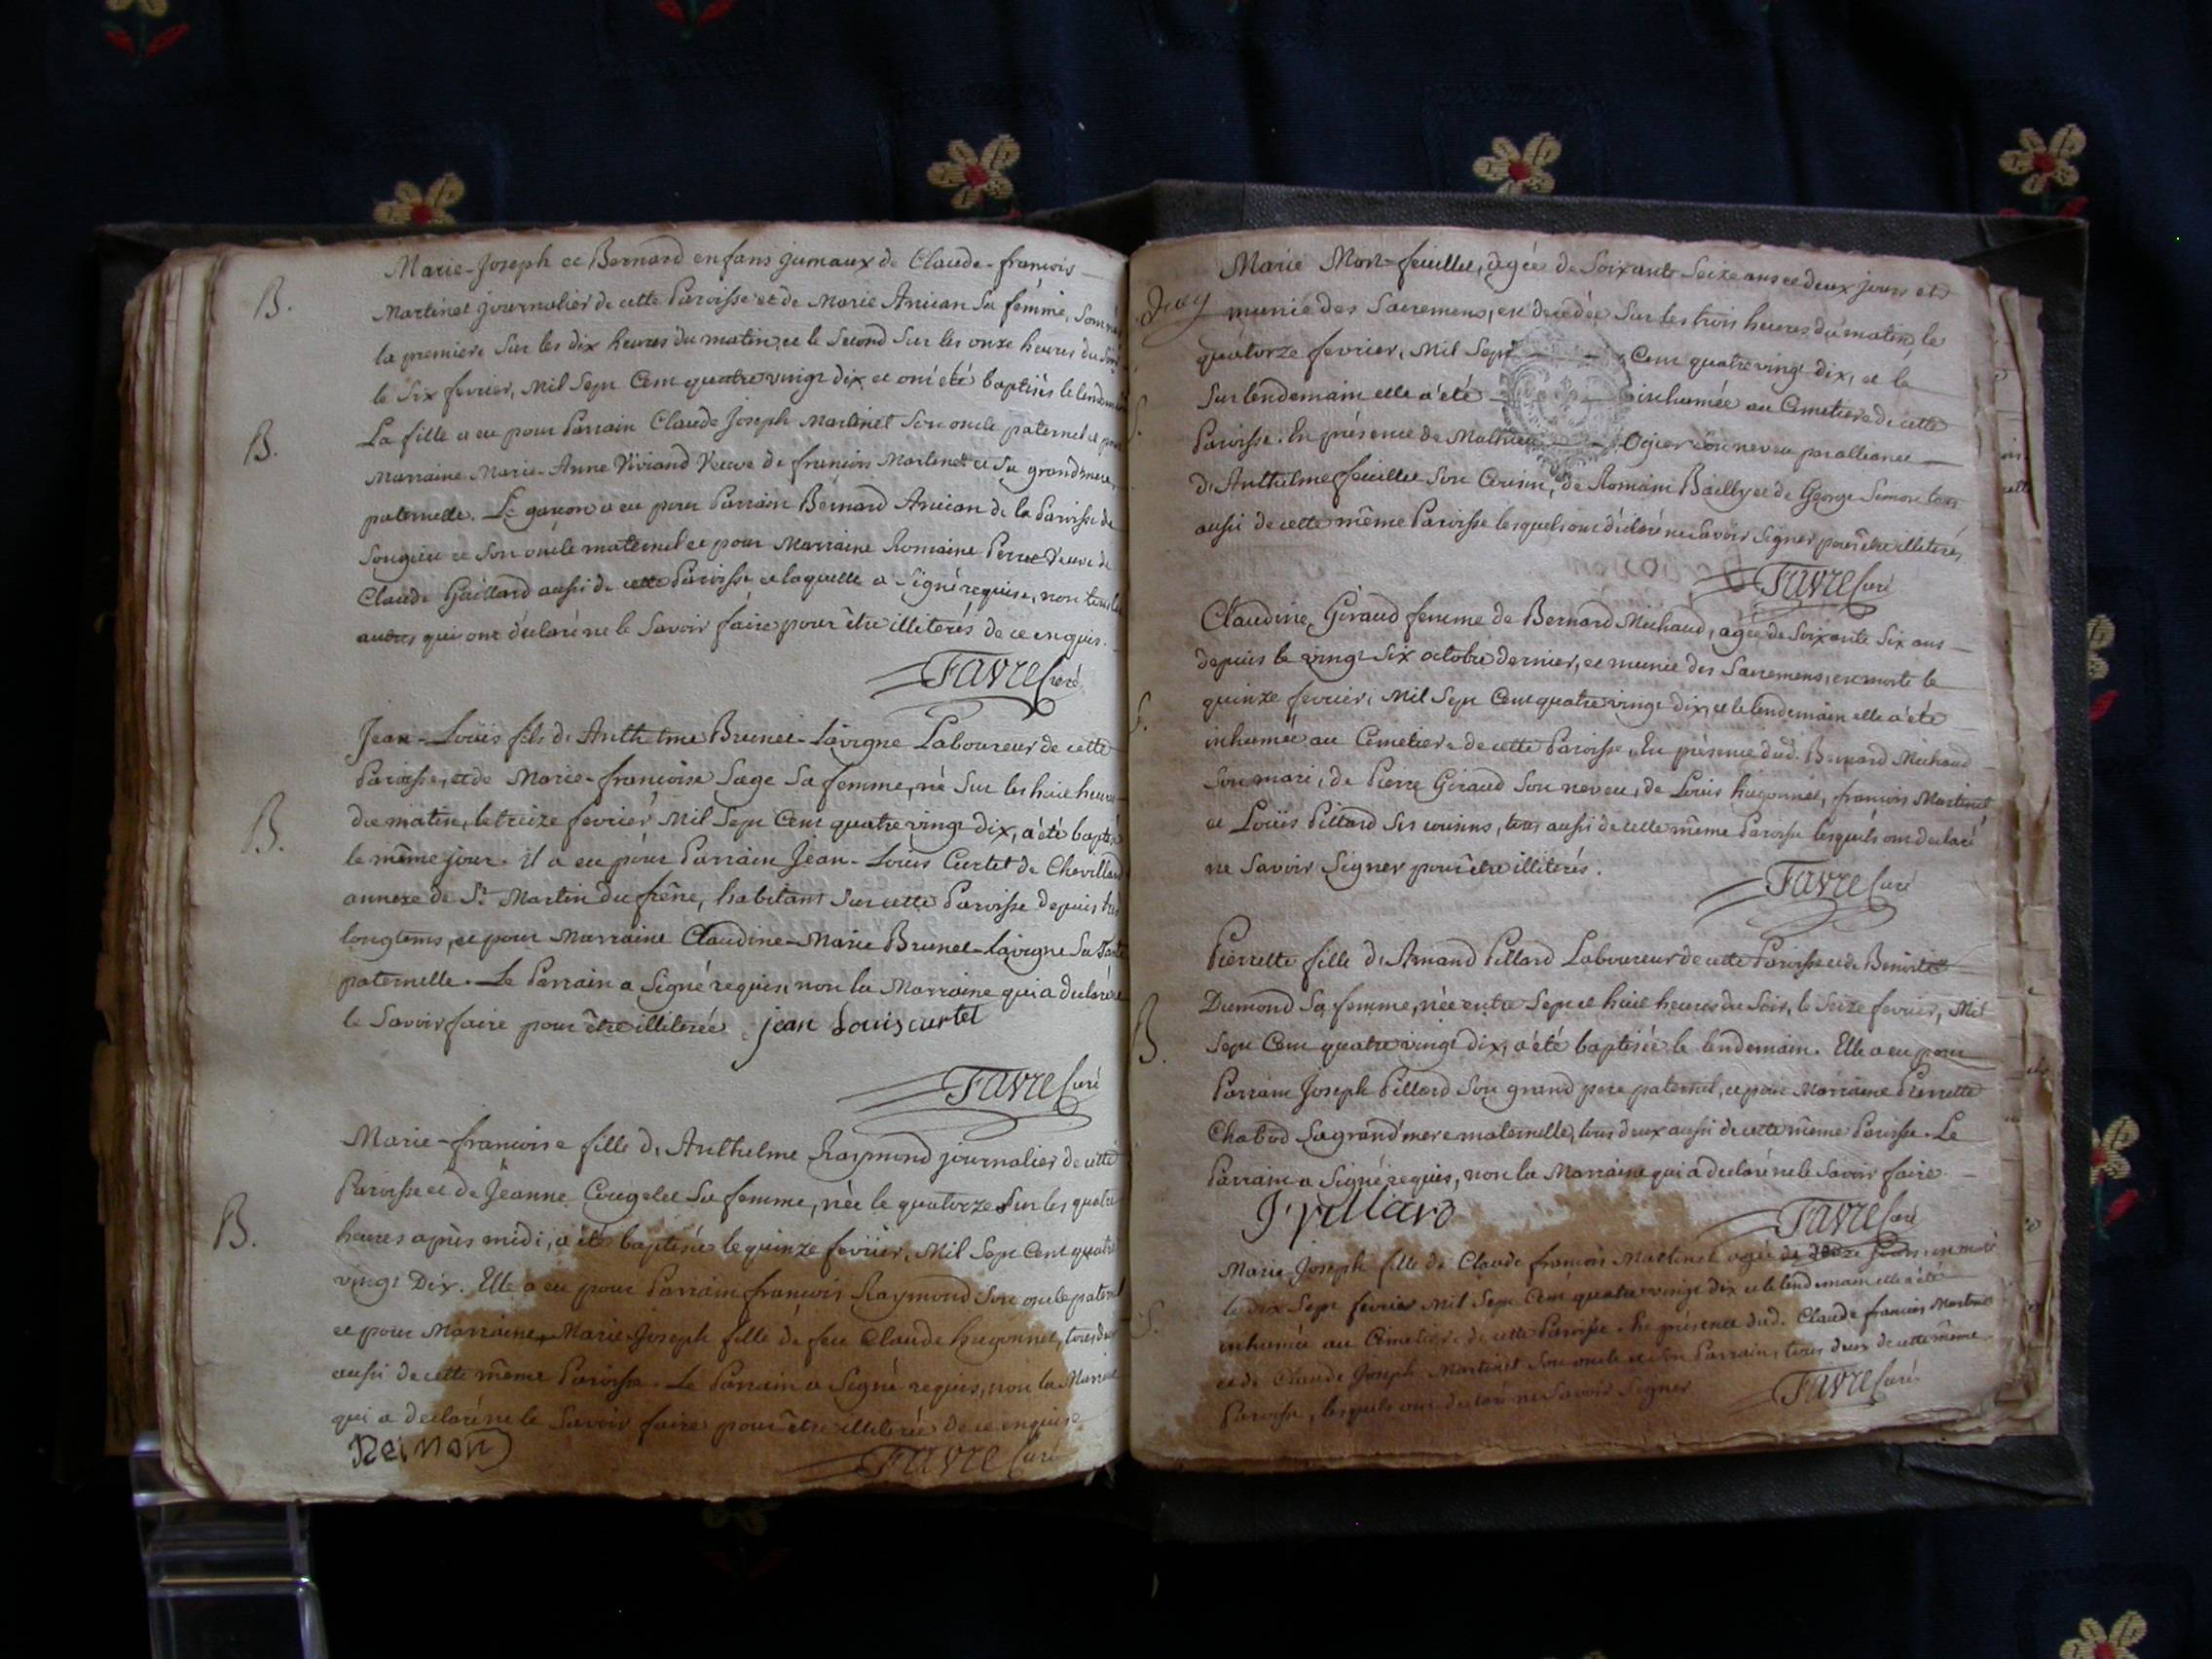 Marie-Joseph et Bernard enfans jumaux de Claude-francois
B.
Martinet journalier de cette Paroisse et de Marie Ancian Sa femme, Sont nés
la premiere Sur les dix heures du matin, et le Second Sur les onze heures du
le Six fevrier, Mil Sept Cent quatre vingt dix et ont été baptisés le lendemain
B.
La fille a eu pour Parrain Claude Joseph Martinet Son oncle paternel et pour
Marraine Marie-Anne Viviand Veuve de francois Martinet et Sa grand mere
paternelle. Le garcon a eu pour Parrain Bernard Ancian de la Paroisse de
Songieu et Son oncle maternel et pour Marraine Romaine Perret Veuve de
Claude Gaillard aussi de cette Paroisse et laquelle a Signé requise, non tous les
autres qui ont déclaré ne le Savoir faire pour être illiterés de ce enquis.
Favre Curé
Jean-Loüis fils d'Anthelme Brunet-Lavigne Laboureur de cette
Paroisse, et de Marie-francoise Sage Sa femme, né Sur les huit heures
B.
du matin, le treize fevrier Mil Sept Cent quatre vingt dix, a été baptisé
le même jour. il a eu pour Parrain Jean-Louis Curtet de Chevillard
annexe de St. Martin du frêne, habitant Sur cette Paroisse depuis très
longtems, et pour Marraine Claudine-Marie Brunet-Lavigne Sa Tante
paternelle. Le Parrain a Signé requis, non la Marraine qui a declaré ne
le Savoir faire pour être illiterée jean Louis curtet
Favre Curé
Marie-francoise fille d'Anthelme Raymond journalier de cette
Paroisse et de Jeanne Cougelet Sa femme, née le quatorze Sur les quatre
B.
heures après midi, a été baptisée le quinze fevrier, Mil Sept Cent quatre
vingt Dix. Elle a eu pour Parrain francois Raymond Son oncle paternel
et pour Marraine, Marie-Joseph fille de feu Claude hugonnet, tous deux
aussi de cette même Paroisse. Le Parrain a Signé requis, non la Marraine
qui a declaré ne le Savoir faire pour être illiterée de ce enquise
Reimon
Favre Curé
Marie Mon-feuillet, agée de Soixante Seize ans et deux jours et
munie des Sacremens, est decedée Sur les trois heures du matin, le
quatorze fevrier, Mil Sept Cent quatre vingt dix, et le
Surlendemain elle a été inhumée au Cimetiere de cette
S.
Paroisse. En présence de Mathieu Ogier Son neveu par alliance
d'Anthelme feuillet Son Cousin, de Romain Bailly et de George Simon tous
aussi de cette même Paroisse lesquels ont déclaré ne Savoir Signer pour être illiterés,
Favre Curé
Claudine Giraud femme de Bernard Michaud, agée de Soixante Six ans
depuis le vingt Six octobre dernier, et munie des Sacremens, est morte le
S.
quinze fevrier, Mil Sept Cent quatre vingt dix, et le lendemain elle a été
inhumée au Cemetiere de cette Paroisse, En présence dud. Bernard Michaud
Son mari, de Pierre Giraud Son neveu, de Louis hugonnet, francois Martinet
et Loüis Pillard Ses cousins, tous aussi de cette même Paroisse lesquels ont declaré
ne Savoir Signer pour être illiterés.
Favre Curé
Pierrette fille d'Amand Pillard Laboureur de cette Paroisse et de Benoite
Dumond Sa femme, née entre Sept et huit heures du Soir, le Seize fevrier, Mil
B.
Sept Cent quatre vingt dix, a été baptisée le lendemain. Elle a eu pour
Parrain Joseph Pillard Son grand pere paternel, et pour Marraine Pierrette
Chabod Sa grand'mere maternelle, tous deux aussi de cette même Paroisse. Le
Parrain a Signé requis, non la Marraine qui a declaré ne le Savoir faire.
J. pillard
Favre Curé
Marie-Joseph fille de Claude francois Martinet agée de jours, est morte
le dix Sept fevrier Mil Sept Cent quatre vingt dix et le lendemain elle a été
S.
inhumée au Cimetiere de cette Paroisse. En présence dud. Claude francois Martinet
et de Claude Joseph Martinet Son oncle et Son Parrain, tous deux de cette même
Paroisse, lesquels ont declaré ne Savoir Signer
Favre Curé